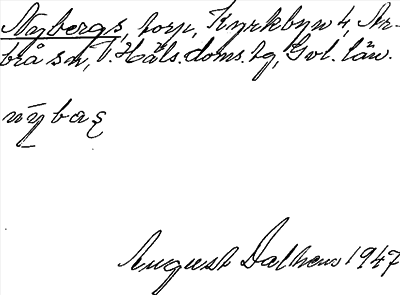 Nybergs, torp, Kyrkbyn 4, Ar-
brå sn, V. Häls. doms. tg, Gvl. län.
nȳbaʂ
August Dalhem 1947